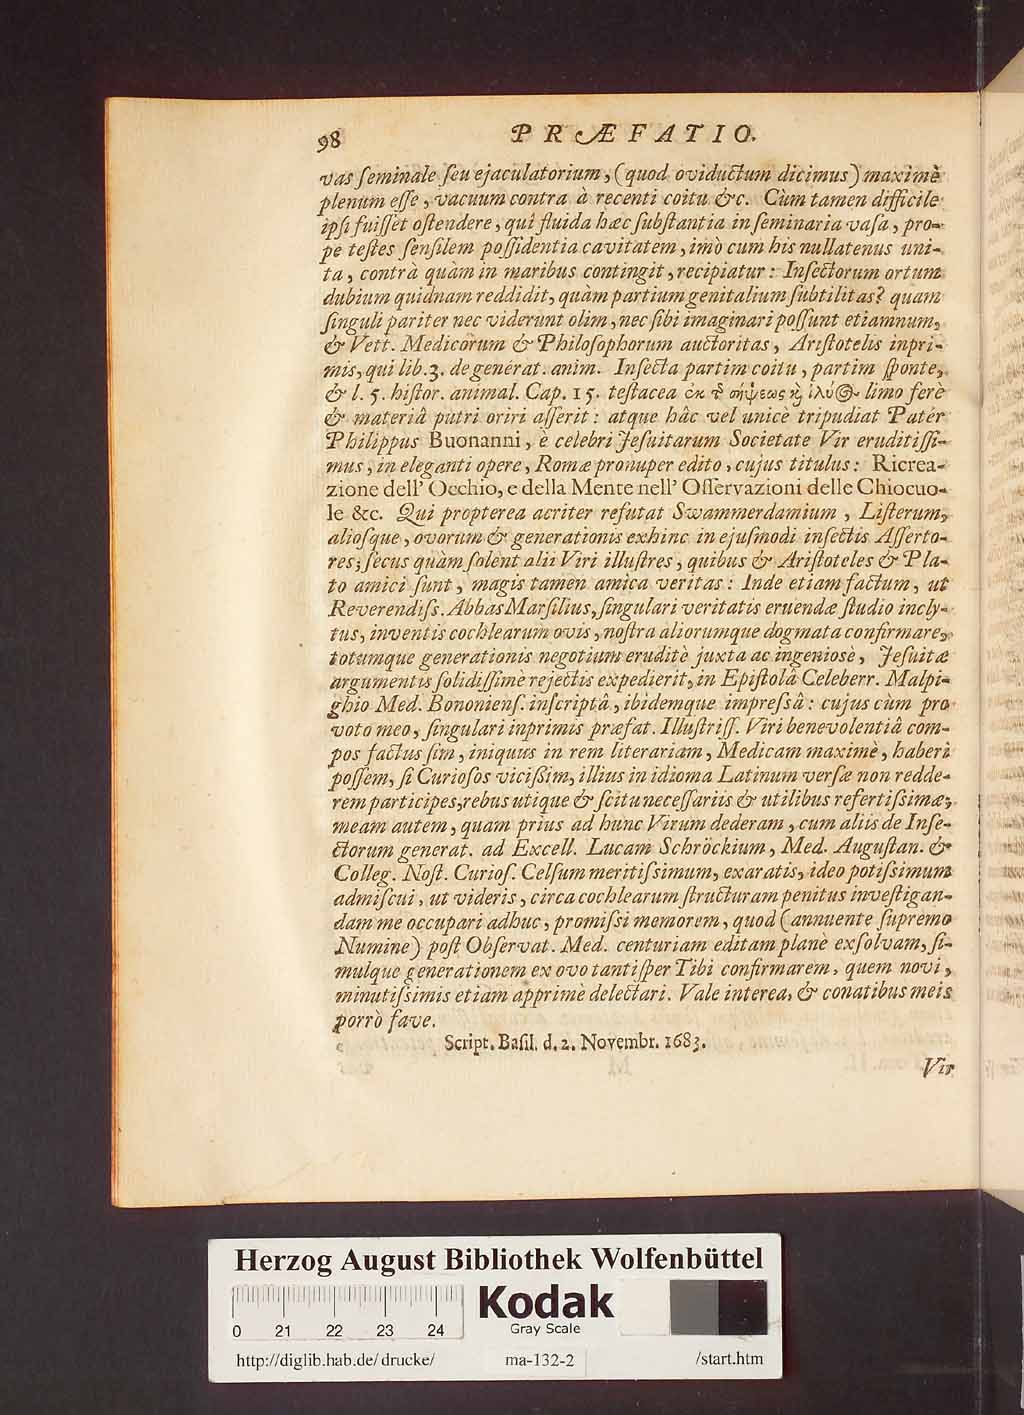 98 PRÆFATIO.
vas ſeminale ſeu ejaculatorium, (quod oviductum dicimus) maximè
plenum eſſe, vacuum contra à recenti coitu &c. Cùm tamen difficile
ipſi fuiſſet oſtendere, quî fluida hæc ſubſtantia in ſeminaria vaſa, pro-
pe teſtes ſenſilem poſſidentia cavitatem, imò cum his nullatenus uni-
ta, contrà quàm in maribus contingit, recipiatur: Inſectorum ortum
dubium quidnam reddidit, quàm partium genitalium ſubtilitas? quam
ſinguli pariter nec viderunt olim, nec ſibi imaginari poſſunt etiamnum,
& Vett. Medicorum & Philoſophorum auctoritas, Ariſtotelis inpri-
mis, qui lib. 3. de generat. anim. Inſecta partim coitu, partim ſponte,
& l. 5. hiſtor. animal. Cap. 15. teſtacea ἐκ τ σήψεως ϗ ἰλύ limo ferè
& materiâ putri oriri aſſerit: atque hâc vel unicè tripudiat Patér
Philippus Buonanni, è celebri Jeſuitarum Societate Vir eruditiſſi-
mus, in eleganti opere, Romæ pronuper edito, cujus titulus: Ricrea-
zione dell' Occhio, e della Mente nell' Oſſervazioni delle Chiocuo-
le &c. Qui propterea acriter refutat Swammerdamium, Liſterum,
alioſque, ovorum & generationis exhinc in ejuſmodi inſectis Aſſerto-
res; ſecus quàm ſolent alii Viri illuſtres, quibus & Ariſtoteles & Pla-
to amici ſunt, magis tamen amica veritas: Inde etiam factum, ut
Reverendiſs. Abbas Marſilius, ſingulari veritatis eruendæ ſtudio incly-
tus, inventis cochlearum ovis, noſtra aliorumque dogmata confirmare,
totumque generationis negotium eruditè juxta ac ingeniosè, Jeſuitæ
argumentis ſolidiſſimè rejectis expedierit, in Epiſtolâ Celeberr. Malpi-
ghio Med. Bononienſ. inſcriptâ, ibidemque impreſsâ: cujus cùm pro
voto meo, ſingulari inprimis præfat. Illuſtriſſ. Viri benevolentiâ com-
pos factus ſim, iniquus in rem literariam, Medicam maximè, haberi
poſſem, ſi Curioſos viciſſim, illius in idioma Latinum verſæ non redde-
rem participes, rebus utique & ſcitu neceſſariis & utilibus refertiſſimæ;
meam autem, quam prius ad hunc Virum dederam, cum aliis de Inſe-
ctorum generat. ad Excell. Lucam Schröckium, Med. Auguſtan. &
Colleg. Noſt. Curioſ. Celſum meritiſsimum, exaratis, ideo potiſsimum
admiſcui, ut videris, circa cochlearum ſtructuram penitus inveſtigan-
dam me occupari adhuc, promiſſi memorem, quod (annuente ſupremo
Numine) poſt Obſervat. Med. centuriam editam planè exſolvam, ſi-
mulque generationem ex ovo tantiſper Tibi confirmarem, quem novi,
minutiſsimis etiam apprimè delectari. Vale interea, & conatibus meis
porrò fave.
Script. Baſil. d. 2. Novembr. 1683.
Vir
Herzog August Bibliothek Wolfenbüttel
Kodak
Gray Scale
0 21 22 23 24
http://diglib.hab.de/drucke/ ma-132-2 /start.htm